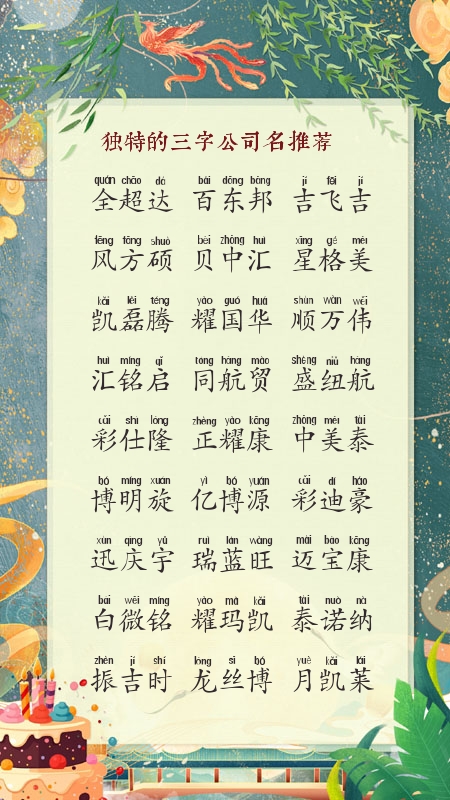 独特的三字公司名推荐
quán chāo dá bǎi dōng bāng jí fēi jí
全超达 百东邦 吉飞吉
fēng fāng shuò bèi zhōng huì xīng gé měi
风方硕 贝中汇 星格美
kǎi lěi téng yào guó huá shùn wàn wěi
凯磊腾 耀国华 顺万伟
huì míng qǐ tóng háng mào shèng niǔ háng
汇铭启 同航贸 盛纽航
cǎi shì lóng zhèng yào kāng zhōng měi tài
彩仕隆 正耀康 中美泰
bó míng xuán yì bó yuán cǎi dí háo
博明旋 亿博源 彩迪豪
xùn qìng yǔ ruì lán wàng mài bǎo kāng
迅庆宇 瑞蓝旺 迈宝康
bái wēi míng yào mǎ kǎi tài nuò nà
白微铭 耀玛凯 泰诺纳
zhèn jí shí lóng sī bó yuè kǎi lái
振吉时 龙丝博 月凯莱